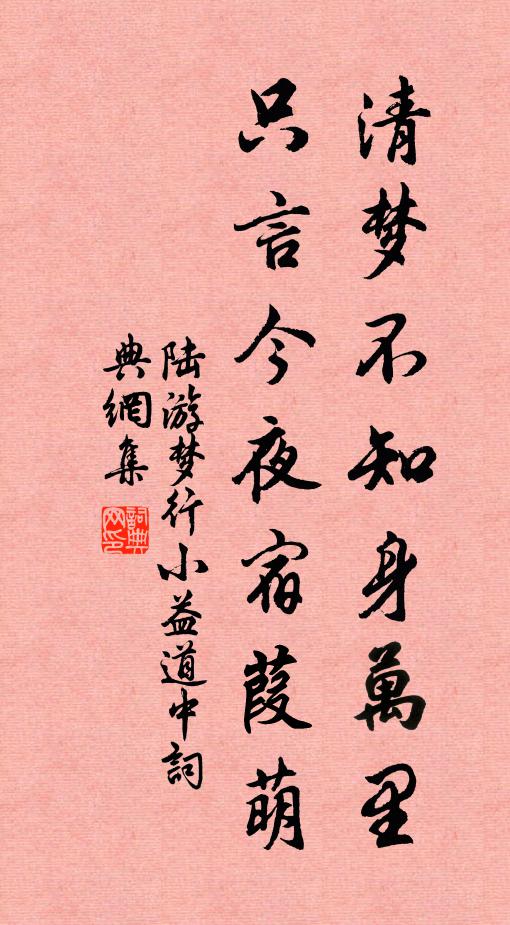 清梦不知身萬里
只言今夜宿葭萌
陆游梦行小益道中詞
典網集
詞典
网印